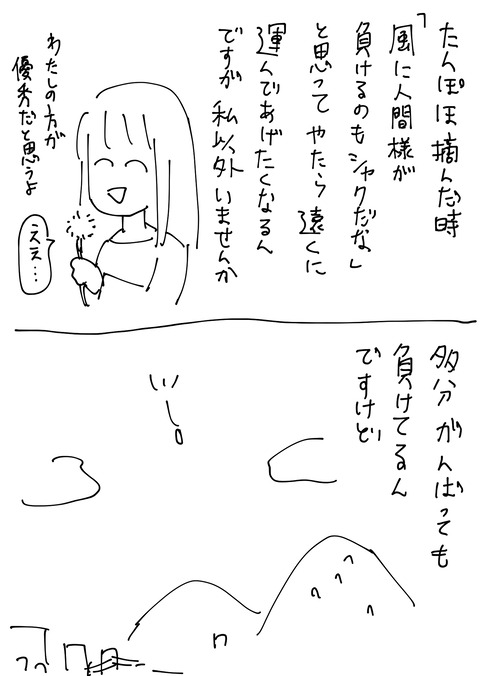 たんぽぽ摘んだ時
「風に人間様が
負けるのもシャクだな」
と思ってやたら遠くに
運んであげたくなるん
ですが私以外いませんか
わたしの方が
優秀だと思うよ
ええ…
多分がんばっても
負けてるん
ですけど